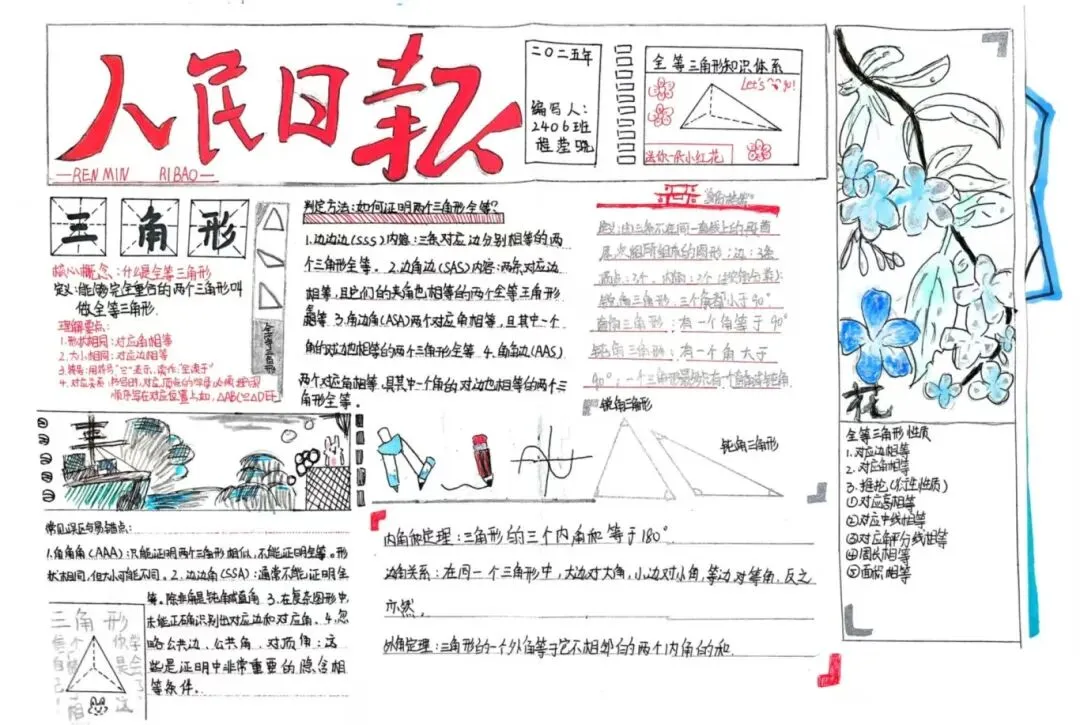 人民日报
REN MIN RI BAO
二〇二五年
编写人：
2406班
全等三角形知识体系
Let's go!
送你一朵小红花
三角形
核心概念：什么是全等三角形
定义：能够完全重合的两个三角形叫
做全等三角形.
理解要点：
1.形状相同：对应角相等
2.大小相同：对应边相等
全等三角形
判定方法：如何证明两个三角形全等?
1.边边边(SSS)内容：三条对应边分别相等的两
个三角形全等。2.边角边(SAS)内容：两条对应边
相等，且它们的夹角也相等的两个全等三角形
3.角边角(ASA)两个对应角相等，且其中一个
角的对边也相等的两个三角形全等 4.角角边(AAS)
两个对应角相等，且其中一个角的对边也相等的两个三
角形全等。
定义：由三条不在同一直线上的
边：3条
锐角三角形：三个角都小于90°
直角三角形：有一个角等于90°
钝角三角形：有一个角大于
90°，
锐角三角形
钝角三角形
花
全等三角形性质
1.对应边相等
2.对应角相等
3.推论(衍生性质)
①对应高相等
②对应中线相等
③对应角平分线相等
④周长相等
⑤面积相等
常见误区与易错点：
1.角角角(AAA)：只能证明两个三角形相似，不能证明全等。形
状相同，但大小可能不同。2.边边角(SSA)：通常不能证明全
等。除非角是钝角或直角 3.在复杂图形中，
未能正确识别出对应边和对应角。4.忽
略公共边、公共角、对顶角：这
些是证明中非常重要的隐含相
等条件.
三角形
内角和定理：三角形的三个内角和等于180°.
边角关系：在同一个三角形中，大边对大角，小边对小角，等边对等角，反之
亦然。
外角定理：三角形的一个外角等于它不相邻的两个内角的和.